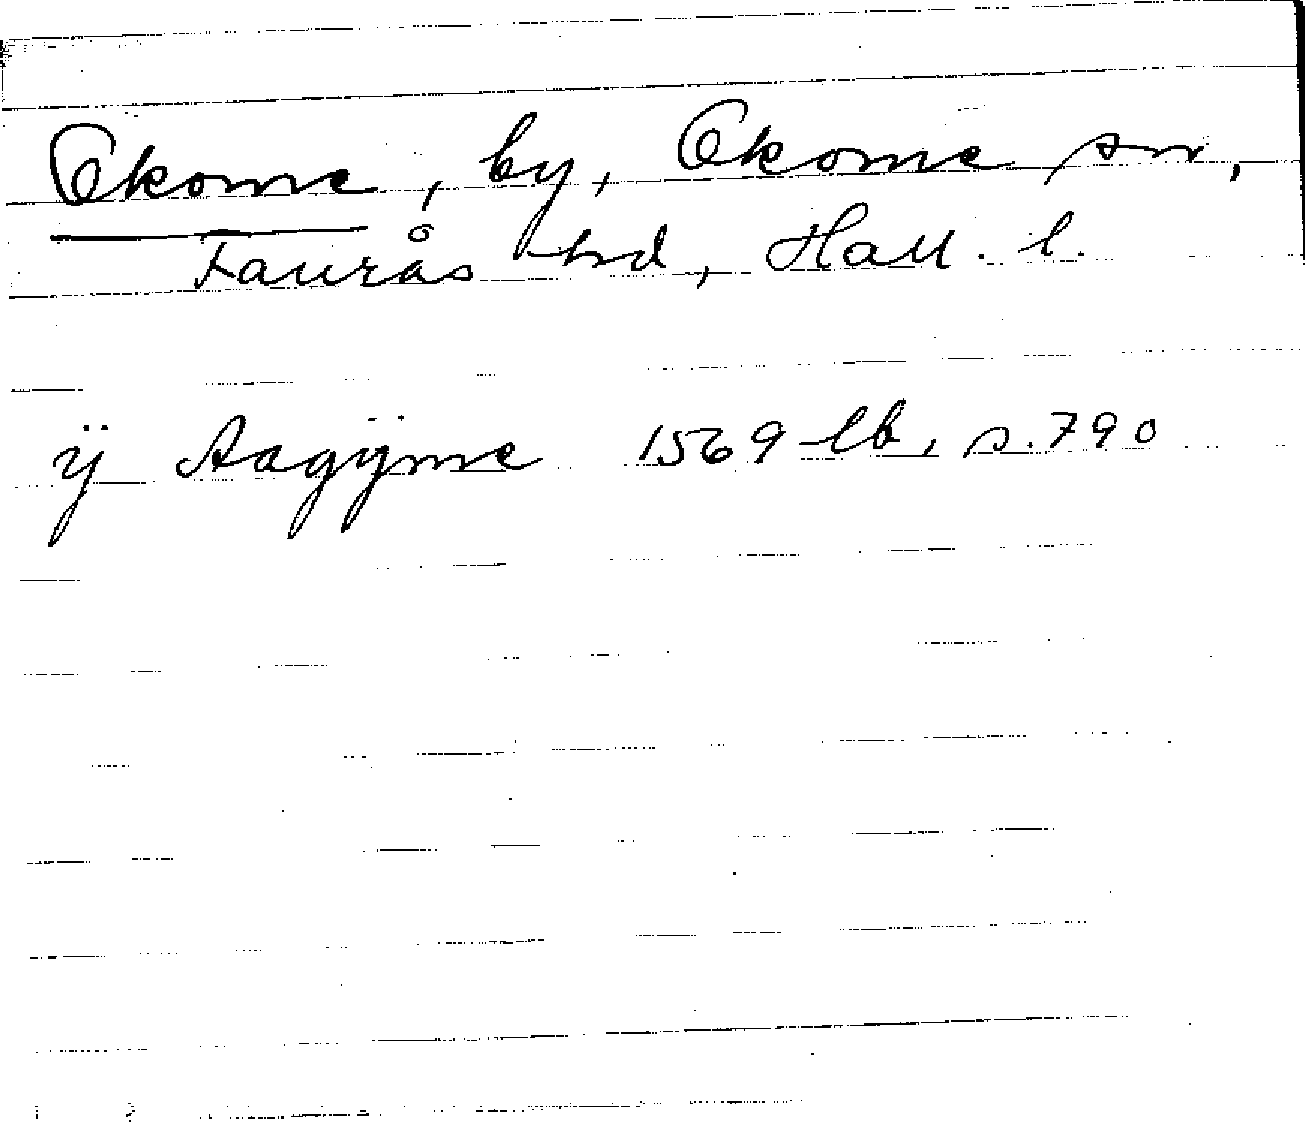 Okome, by, Okome sn,
Faurås hd, Hall. l.
ÿ Aagÿme 1569 lb, s. 790